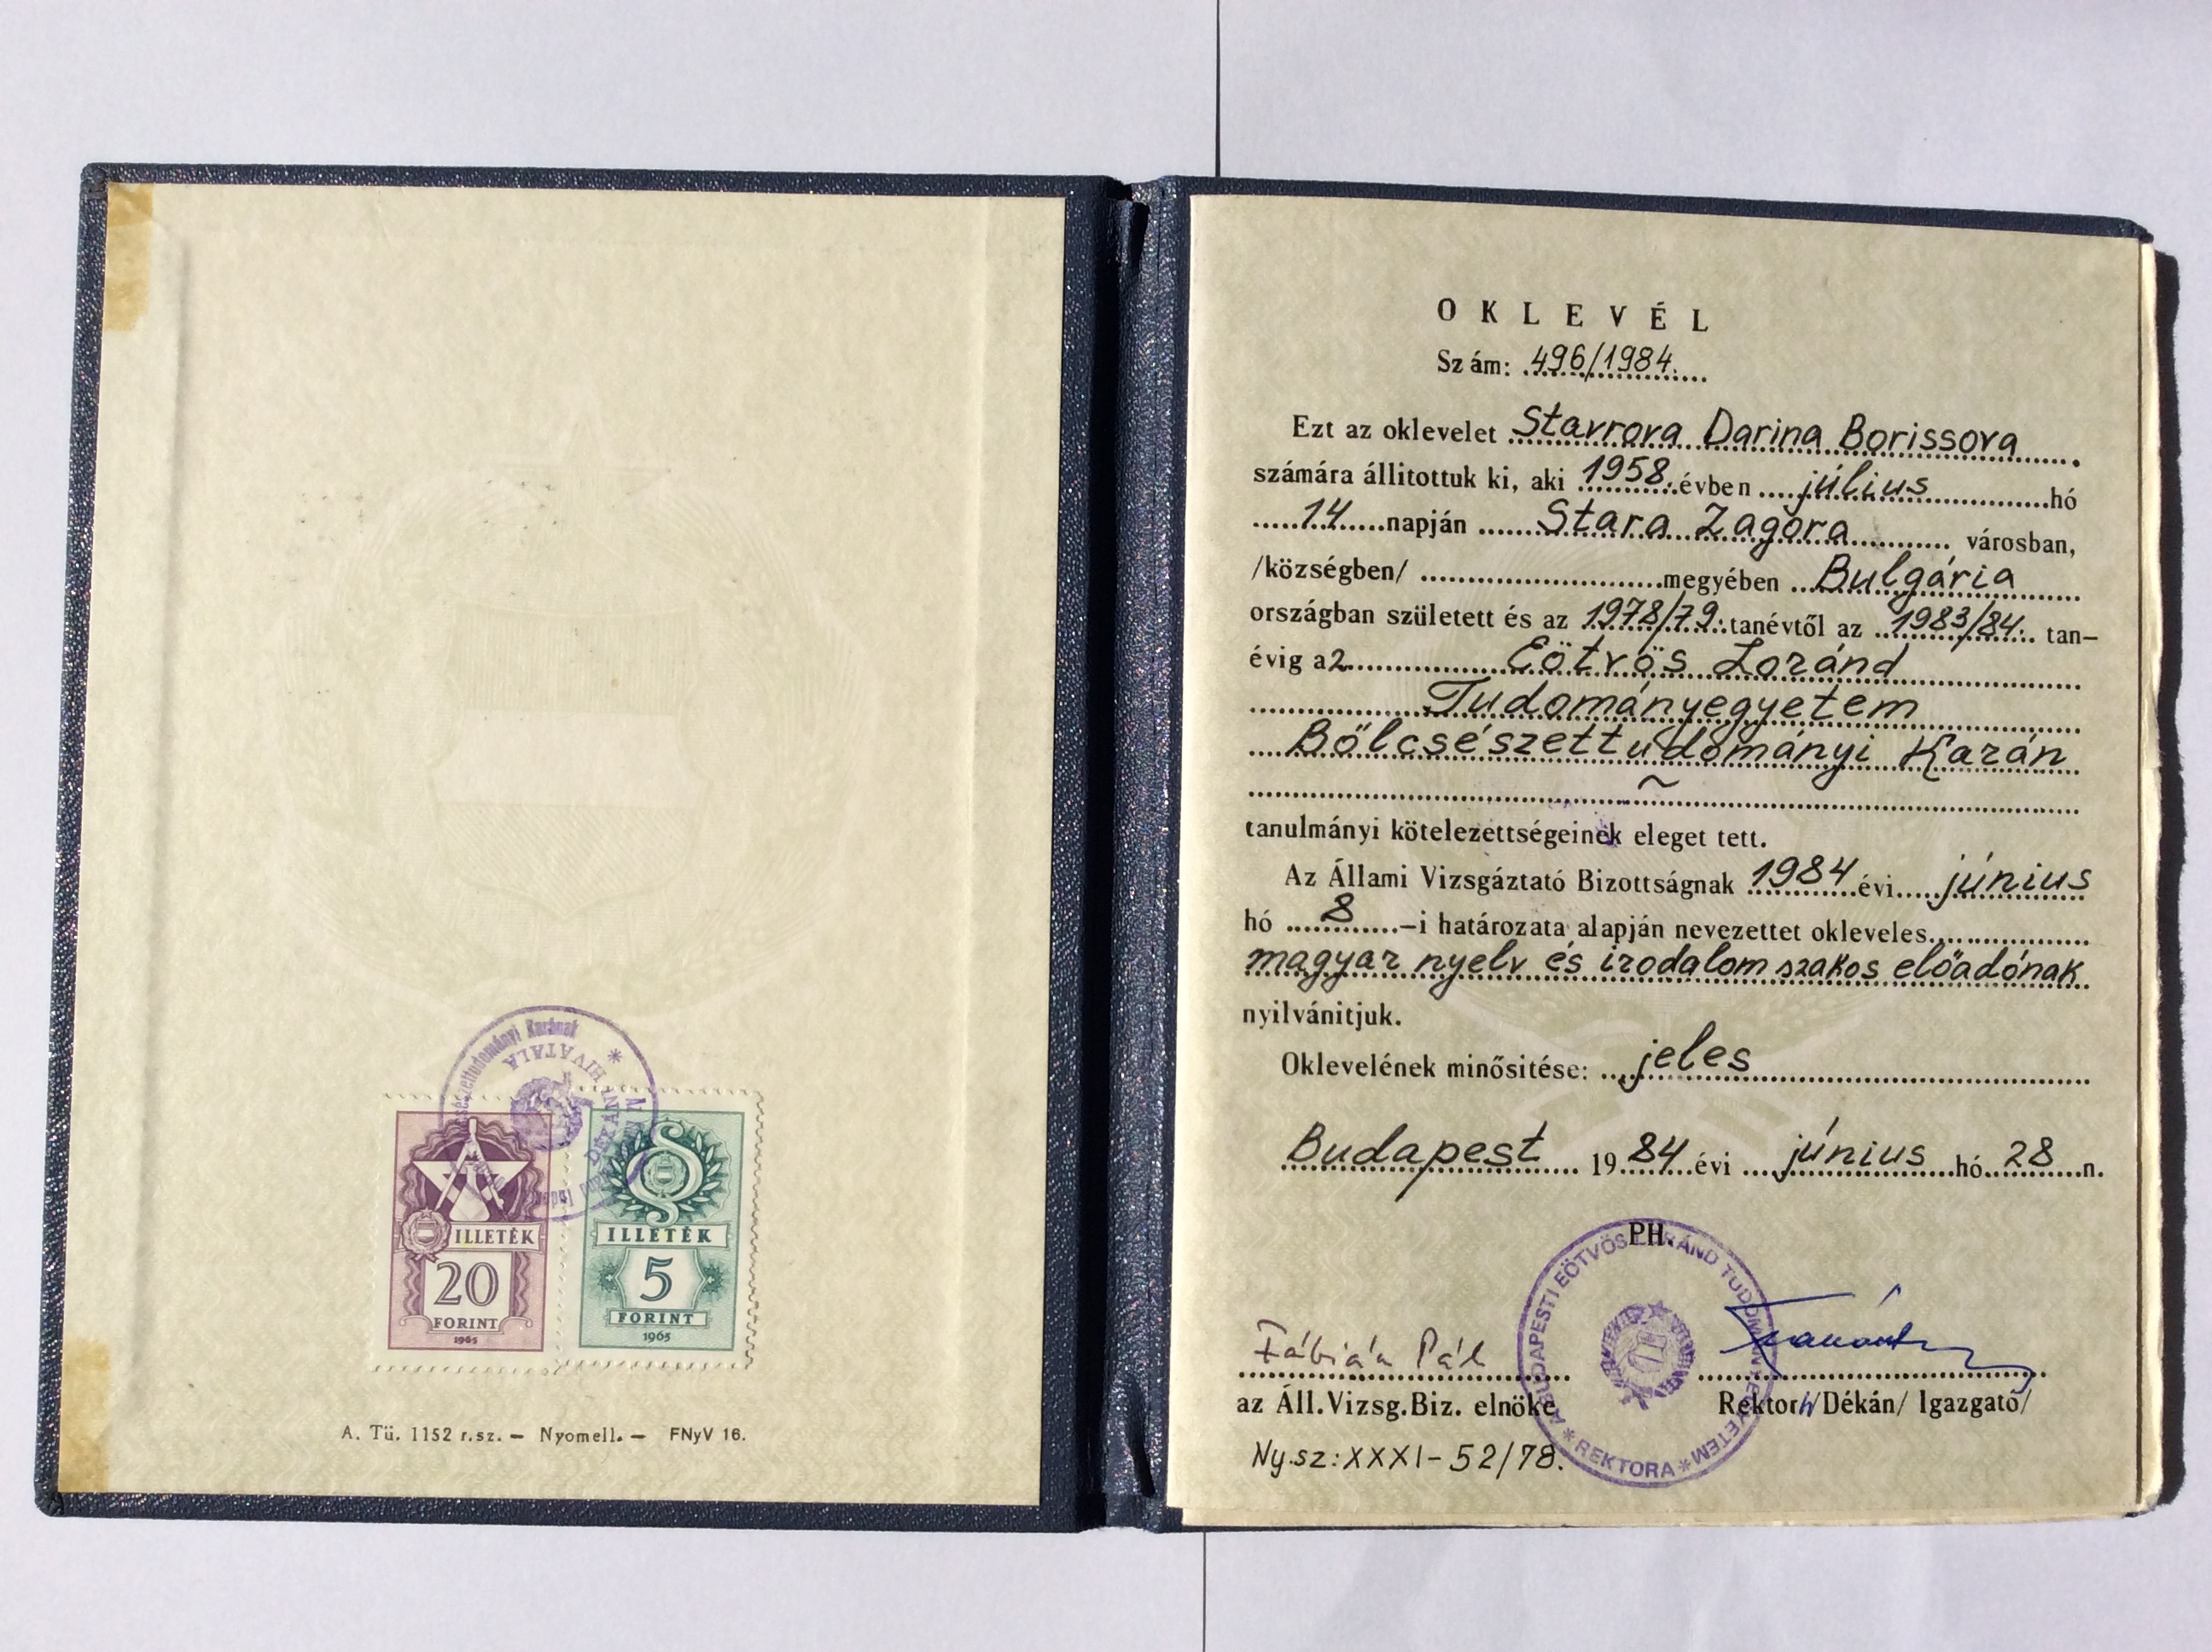 HIVATALA
ILLETÉK
20
FORINT
1965
ILLETÉK
5
FORINT
1965
A. Tü. 1152 r.sz. — Nyomell. — FNyV 16.
OKLEVÉL
Szám: 496/1984.
Ezt az oklevelet Stavrova Darina Borissova
számára állitottuk ki, aki 1958. évben július hó
14 napján Stara Zagora városban,
/községben/ megyében Bulgária
országban született és az 1978/79. tanévtől az 1983/84. tan-
évig az Eötvös Loránd
Tudományegyetem
Bölcsészettudományi Karán
~
tanulmányi kötelezettségeinek eleget tett.
Az Állami Vizsgáztató Bizottságnak 1984 évi június
hó 8 -i határozata alapján nevezettet okleveles
magyar nyelv és irodalom szakos előadónak
nyilvánitjuk.
Oklevelének minősitése: jeles
Budapest 1984 évi június hó 28 n.
PH.
A BUDAPESTI EÖTVÖS LORÁND TUDOMÁNYEGYETEM * REKTORA *
Fábián Pál
az Áll.Vizsg.Biz. elnöke
Rektor /Dékán/ Igazgató/
Ny.sz: XXXI-52/78.